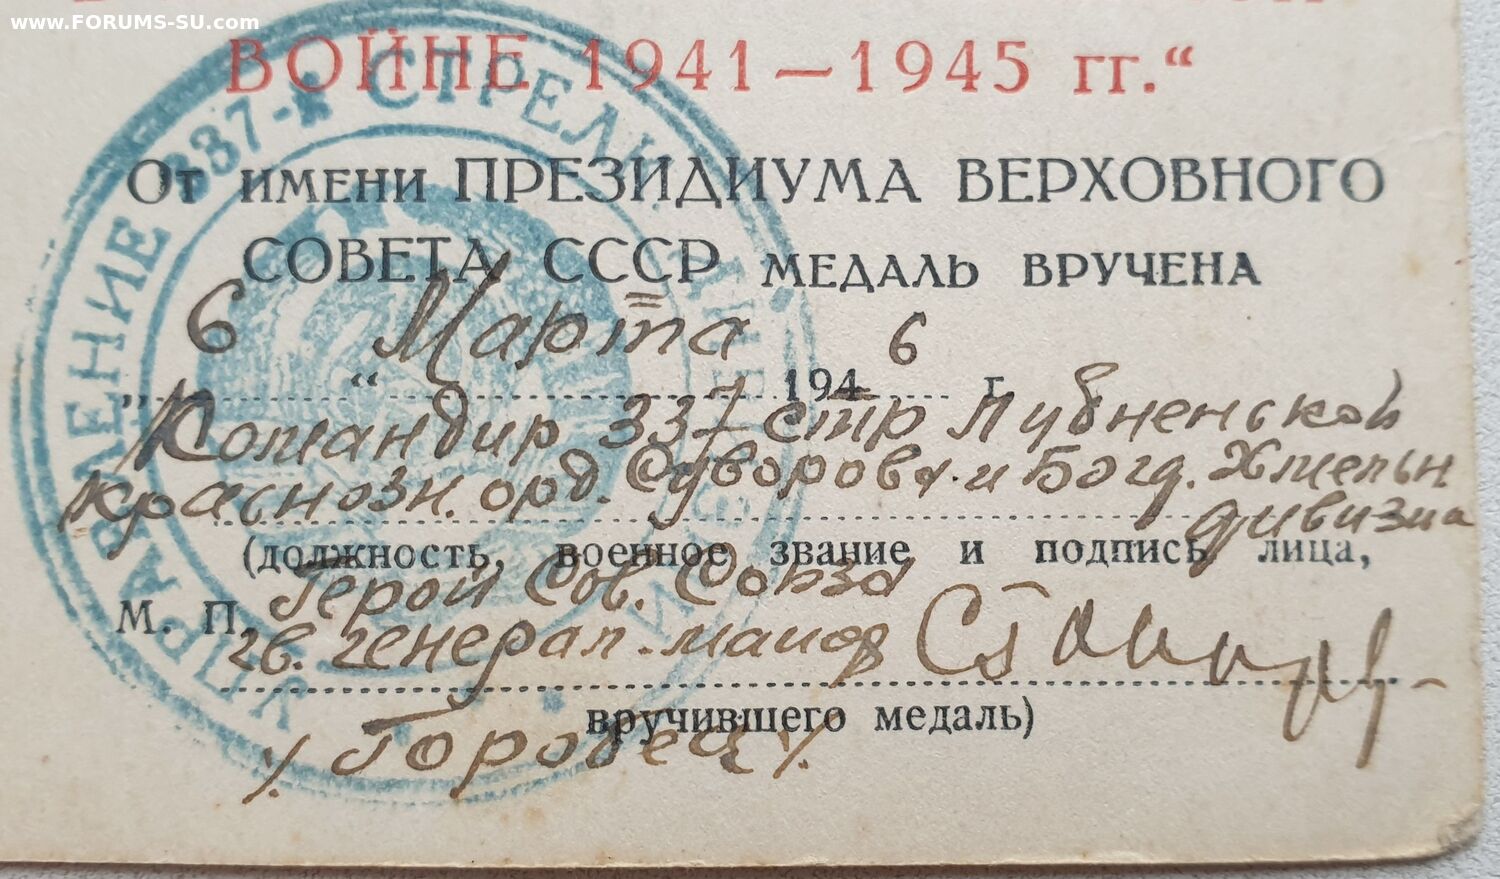 www.FORUMS-SU.com
ВОЙНЕ 1941—1945 гг.“
От имени ПРЕЗИДИУМА ВЕРХОВНОГО
СОВЕТА СССР МЕДАЛЬ ВРУЧЕНА
„6“ Марта 1946 г.
Командир 337 стр Лубненской
краснозн. орд. Суворова и Богд. Хмельн
дивизиа
(должность, военное звание и подпись лица,
Герой Сов. Союза
М. П.
гв. генерал-майор
вручившего медаль)
/Горобец/.
УПРАВЛЕНИЕ 337-й СТРЕЛ